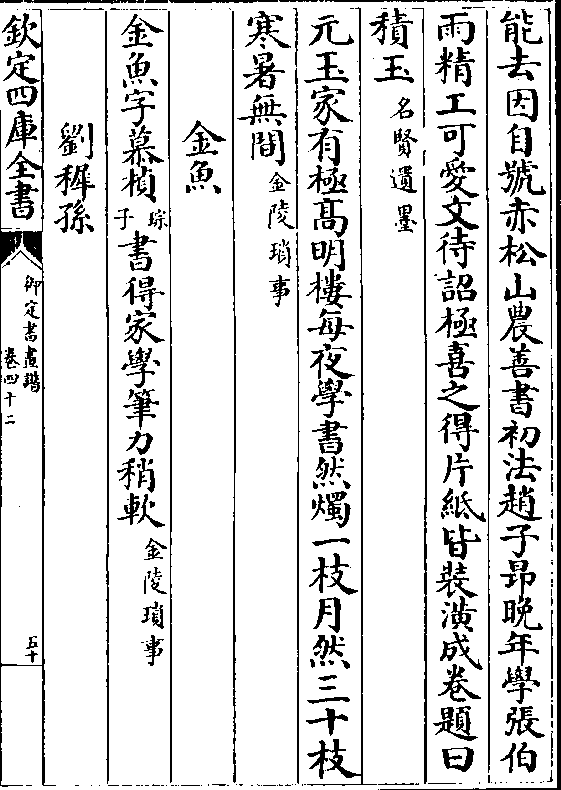 能去因自號赤松山農善書初法趙子昻晚年學張伯
雨精工可愛文待詔極喜之得片紙皆裝潢成卷題曰
積玉名賢遺墨
元玉家有極髙明樓每夜學書然燭一枝月然三十枝
寒暑無間金陵瑣事
金魚
金魚字慕楨琮子書得家學筆力稍軟金陵瑣事
劉穉孫
欽定四庫全書
御定書畫譜
卷四十二
五十